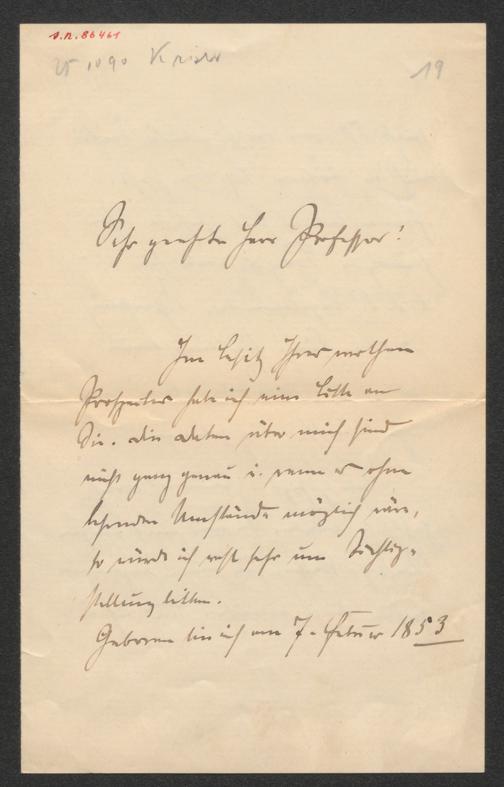 I.N. 86461
19
Sehr geehrter Herr Professor!
Im Besitz Ihres werthen
Prospectes habe ich eine Bitte an
Sie. Die Daten über mich sind
nicht ganz genau u. wenn es ohne
besondere Umstände möglich wäre,
so würde ich recht sehr um Richtig-
stellung bitten.
Geboren bin ich am 7. Februar 1853